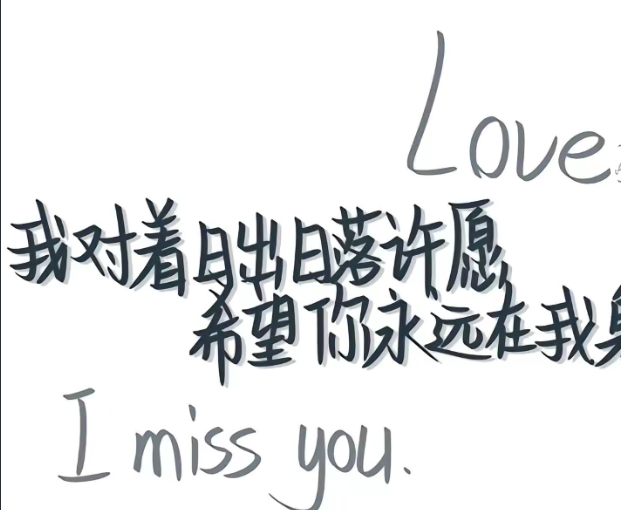 Love
我对着日出日落许愿
希望你永远在我
I miss you.